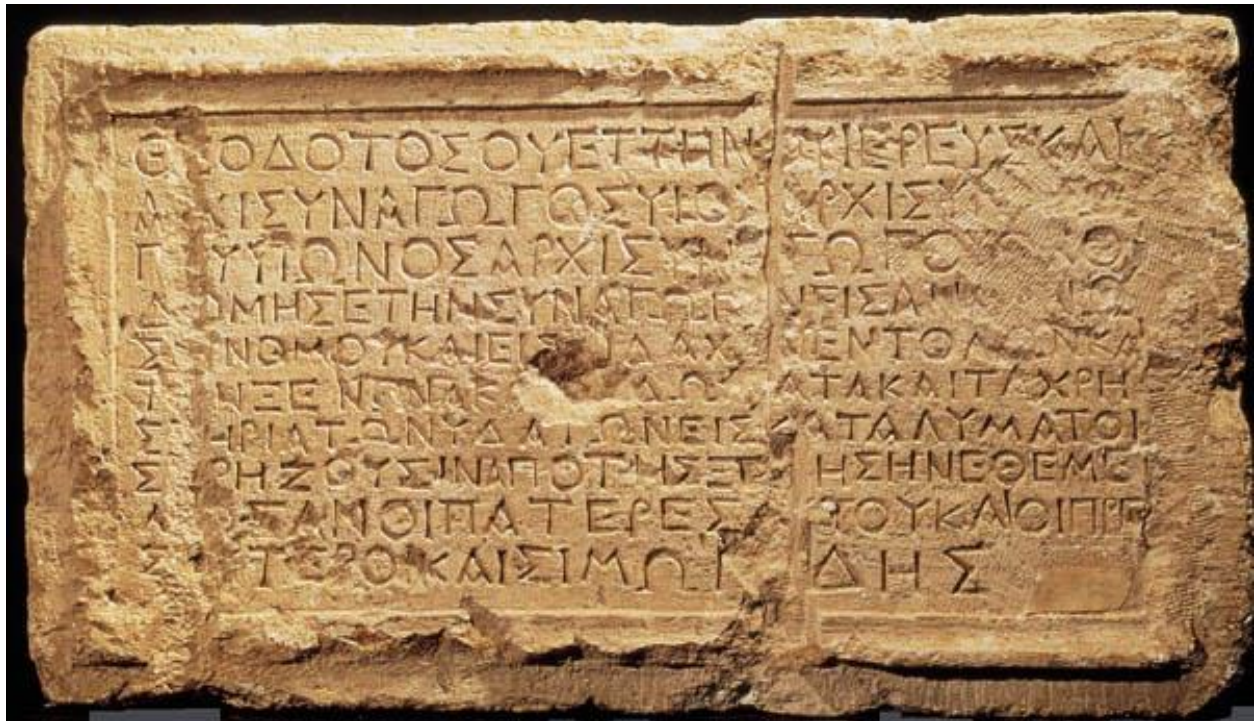 ΘΕΟΔΟΤΟΣ ΟΥΕΤΤΗΝΟΥ ΙΕΡΕΥΣ ΚΑΙ
ΑΡΧΙΣΥΝΑΓΩΓΟΣ ΥΙΟΣ ΑΡΧΙΣΥ
ΓΟΥ ΥΙΩΝΟΣ ΑΡΧΙΣΥΝΑΓΩΓΟΥ Ω ΚΟ
ΔΟΜΗΣΕ ΤΗΝ ΣΥΝΑΓΩΓ Ν ΕΙΣ ΑΝΑ ΝΩ
Σ Ν ΝΟΜΟΥ ΚΑΙ ΕΙΣ ΔΑΧ Ν ΕΝΤΟΛΩΝ ΚΑ
ΤΟΝ ΞΕΝΩΝΑ ΚΑ ΔΩΜΑΤΑ ΚΑΙ ΤΑ ΧΡΗ
ΣΤΗΡΙΑ ΤΩΝ ΥΔΑΤΩΝ ΕΙΣ ΚΑΤΑΛΥΜΑ ΤΟΙ
Σ ΧΡΗΖΟΥΣΙΝ ΑΠΟ ΤΗΣ ΞΕ ΗΣ ΗΝ ΕΘΕΜΕ
Λ ΣΑΝ ΟΙ ΠΑΤΕΡΕΣ ΤΟΥ ΚΑΙ ΟΙ ΠΡΕ
Σ ΤΕΡΟΙ ΚΑΙ ΣΙΜΩΝ ΔΗΣ